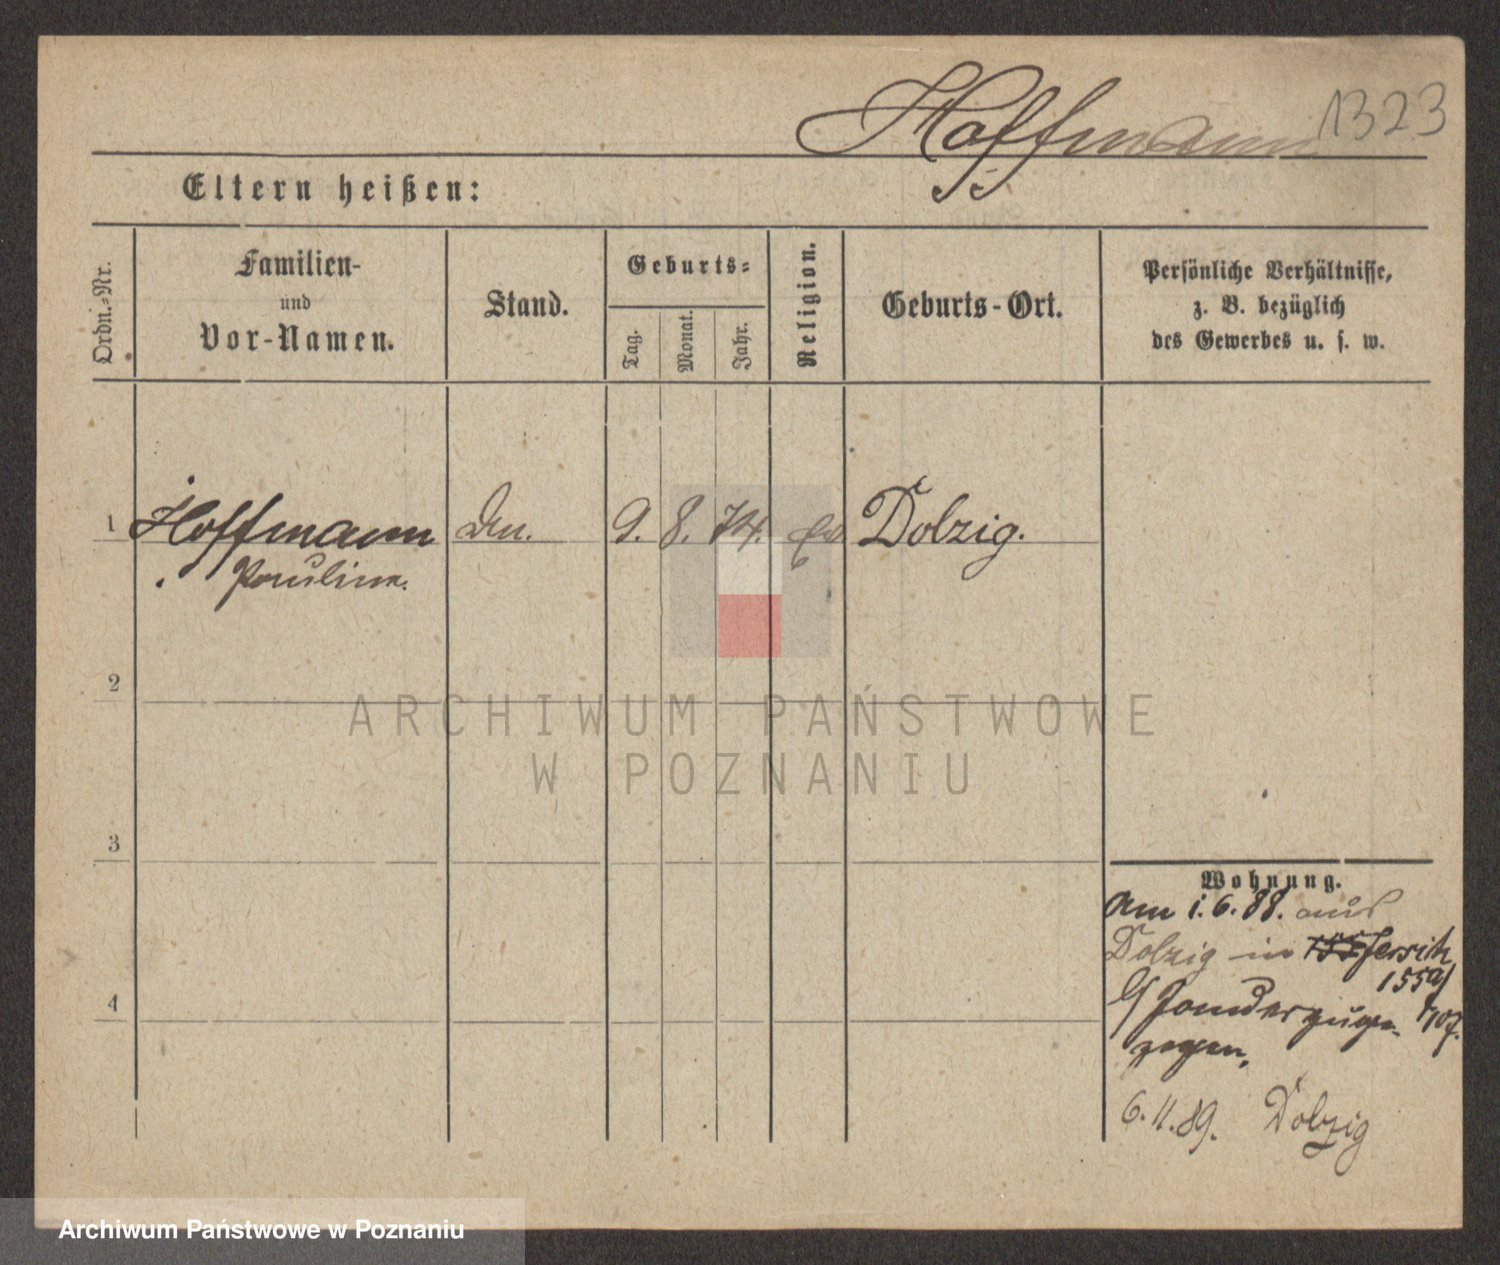 Hoffmann 1323
Eltern heißen:
Ordn.-Nr.
Familien-
und
Vor-Namen.
Stand.
Geburts-
Tag.
Monat.
Jahr.
Religion.
Geburts-Ort.
Persönliche Verhältnisse,
z. B. bezüglich
des Gewerbes u. s. w.
1 Hoffmann 9. 8. 74. Dolzig.
Pauline.
2
ARCHIWUM PAŃSTWOWE
W POZNANIU
3
4
Wohnung.
Am 1.6.88. aus
Dolzig in Jersitz
155a/
zuge- 107.
zogen,
6.11.89. Dolzig
Archiwum Państwowe w Poznaniu